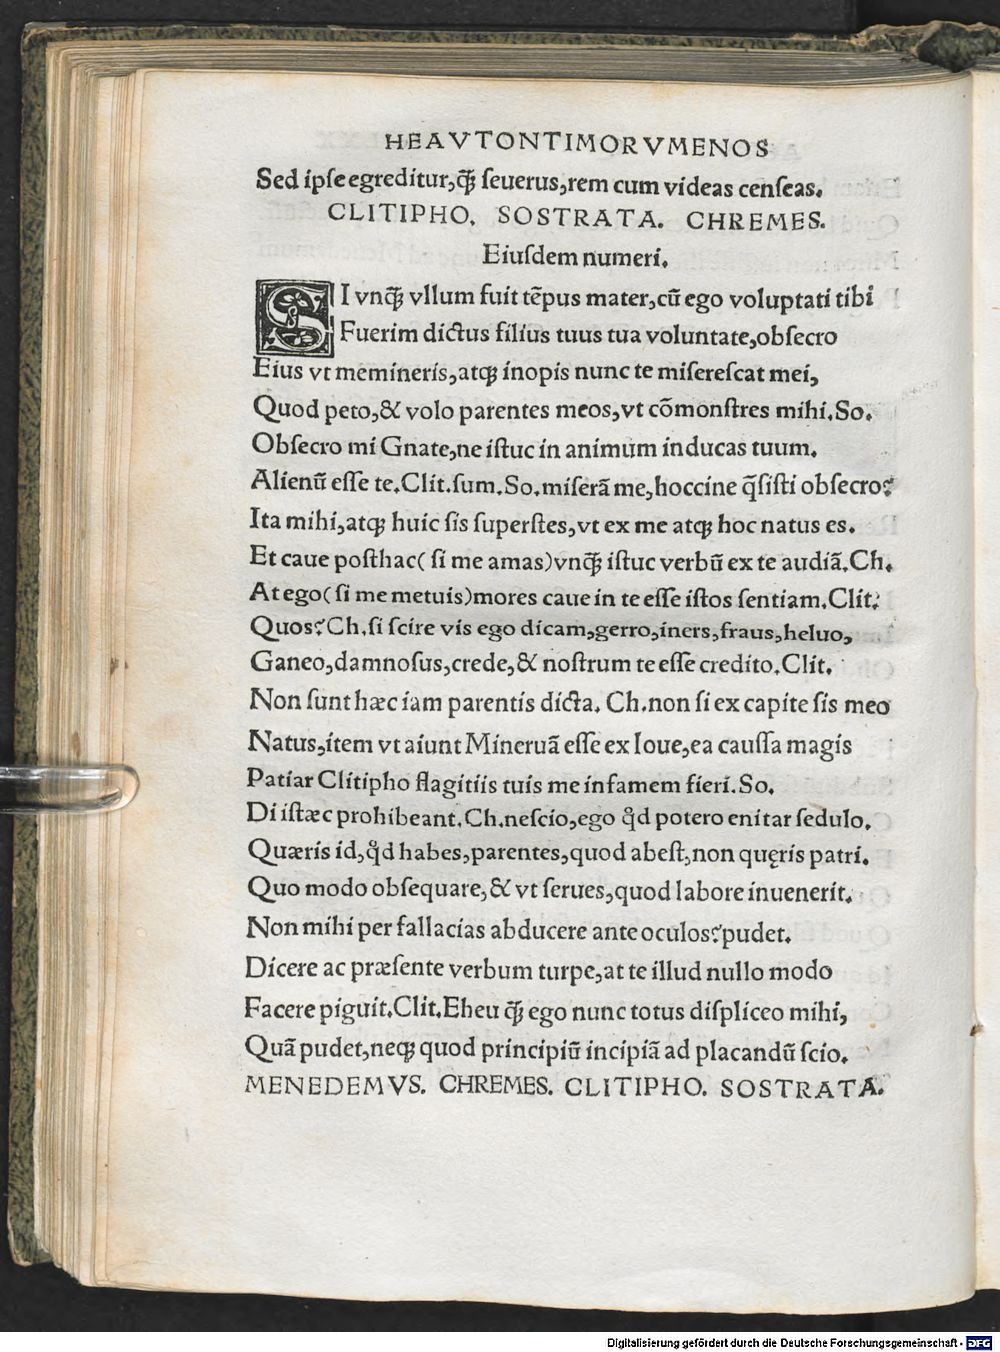 HEAVTONTIMORVMENOS
Sed ipſe egreditur,qꝫ̃ ſeuerus,rem cum videas cenſeas.
CLITIPHO. SOSTRATA. CHREMES.
Eiuſdem numeri.
SI vnqꝫ̃ vllum fuit tẽpus mater,cũ ego voluptati tibi
Fuerim dictus filius tuus tua voluntate,obſecro
Eius vt memineris,atqꝫ inopis nunc te miſereſcat mei,
Quod peto,& volo parentes meos,vt cõmonſtres mihi.So.
Obſecro mi Gnate,ne iſtuc in animum inducas tuum.
Alienũ eſſe te.Clit.ſum.So.miſerã me,hoccine q̃ſiſti obſecro?
Ita mihi,atqꝫ huic ſis ſuperſtes,vt ex me atqꝫ hoc natus es.
Et caue poſthac( ſi me amas)vnqꝫ̃ iſtuc verbũ ex te audiã.Ch.
At ego( ſi me metuis)mores caue in te eſſe iſtos ſentiam.Clit.
Quos?Ch.ſi ſcire vis ego dicam,gerro,iners,fraus,heluo,
Ganeo,damnoſus,crede,& noſtrum te eſſe credito.Clit.
Non ſunt hæc iam parentis dicta. Ch.non ſi ex capite ſis meo
Natus,item vt aiunt Mineruã eſſe ex Ioue,ea cauſſa magis
Patiar Clitipho flagitiis tuis me infamem fieri.So.
Di iſtæc prohibeant.Ch.neſcio,ego qͥd potero enitar ſedulo.
Quæris id,qͥd habes,parentes,quod abeſt,non quęris patri.
Quo modo obſequare,& vt ſerues,quod labore inuenerit.
Non mihi per fallacias abducere ante oculos?pudet.
Dicere ac præſente verbum turpe,at te illud nullo modo
Facere piguit.Clit.Eheu qꝫ̃ ego nunc totus diſpliceo mihi,
Quã pudet,neqꝫ quod principiũ incipiã ad placandũ ſcio.
MENEDEMVS. CHREMES. CLITIPHO. SOSTRATA.
Digitalisierung gefördert durch die Deutsche Forschungsgemeinschaft - DFG